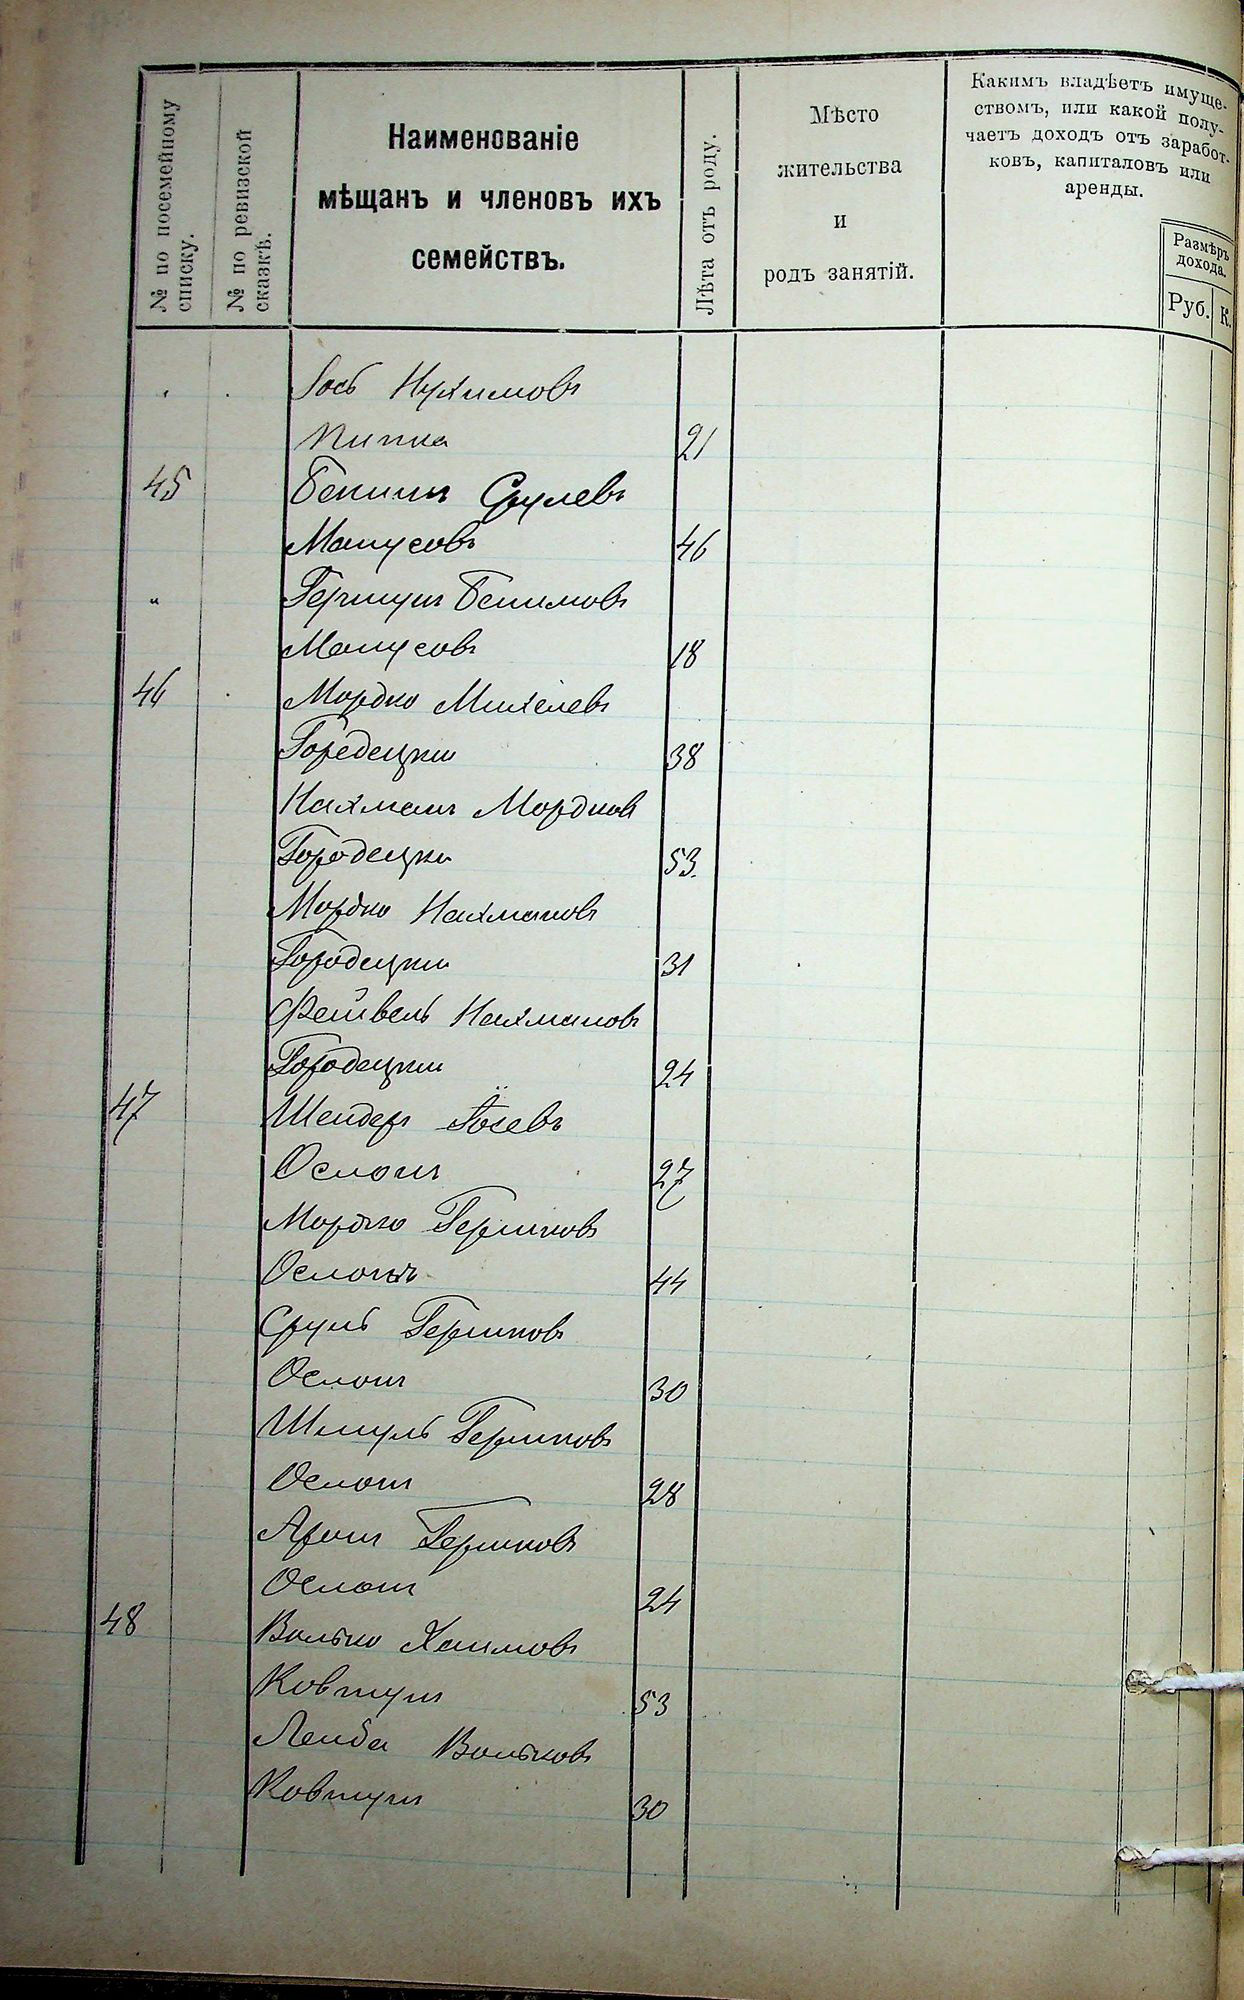 № по посемейному
списку.
№ по ревизской
сказкѣ.
Наименованіе
мѣщанъ и членовъ ихъ
семействъ.
Лѣта отъ роду.
Мѣсто
жительства
и
родъ занятій.
Какимъ владѣетъ имуще-
ствомъ, или какой полу-
чаетъ доходъ отъ заработ-
ковъ, капиталовъ или
аренды.
Размѣръ
дохода.
Руб. К.
Іось Нухимовъ
21
45 Срулевъ
Манусовъ 46
" Гершун Бенимовъ
Манусовъ 18
46 Мордко Михелевъ
Городецкій 38
Нахманъ Мордков
Городецкій 53.
Мордко Нахмановъ
Городецкій 31
Фейвель Нахмановъ
Городецкій 24
47 Шендер
27
Мордко Гершковъ
44
Сруль Гершковъ
30
Шмуль Гершковъ
28
Арон Гершковъ
24
48 Волько Хаимовъ
Ковтун 53
Лейба Вольковъ
Ковтун 30